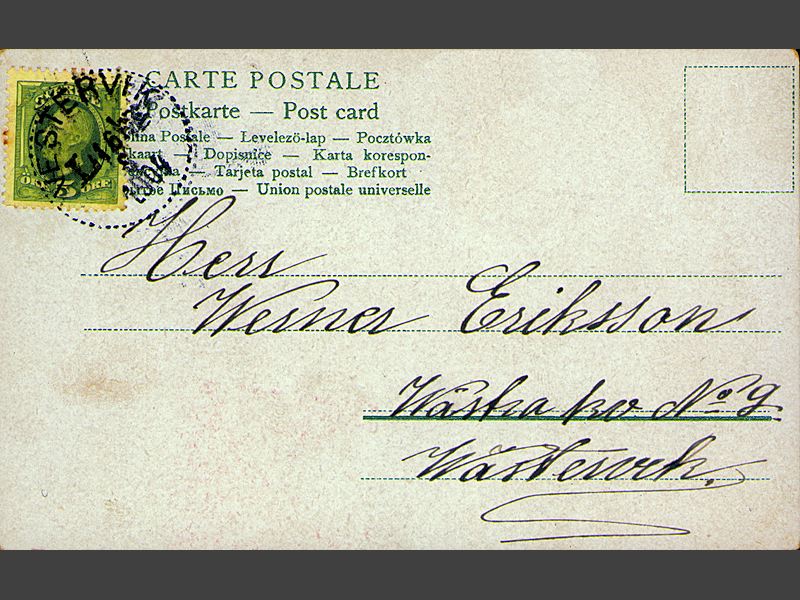 CARTE POSTALE
Postkarte — Post card
Postale — Levelező-lap — Pocztówka
Dopisnice — Karta korespon-
— Tarjeta postal — Brefkort
Письмо — Union postale universelle
VESTERVIK
5 ÖRE
Herr
Werner Eriksson
Wästra kv No 9
Wästervik.